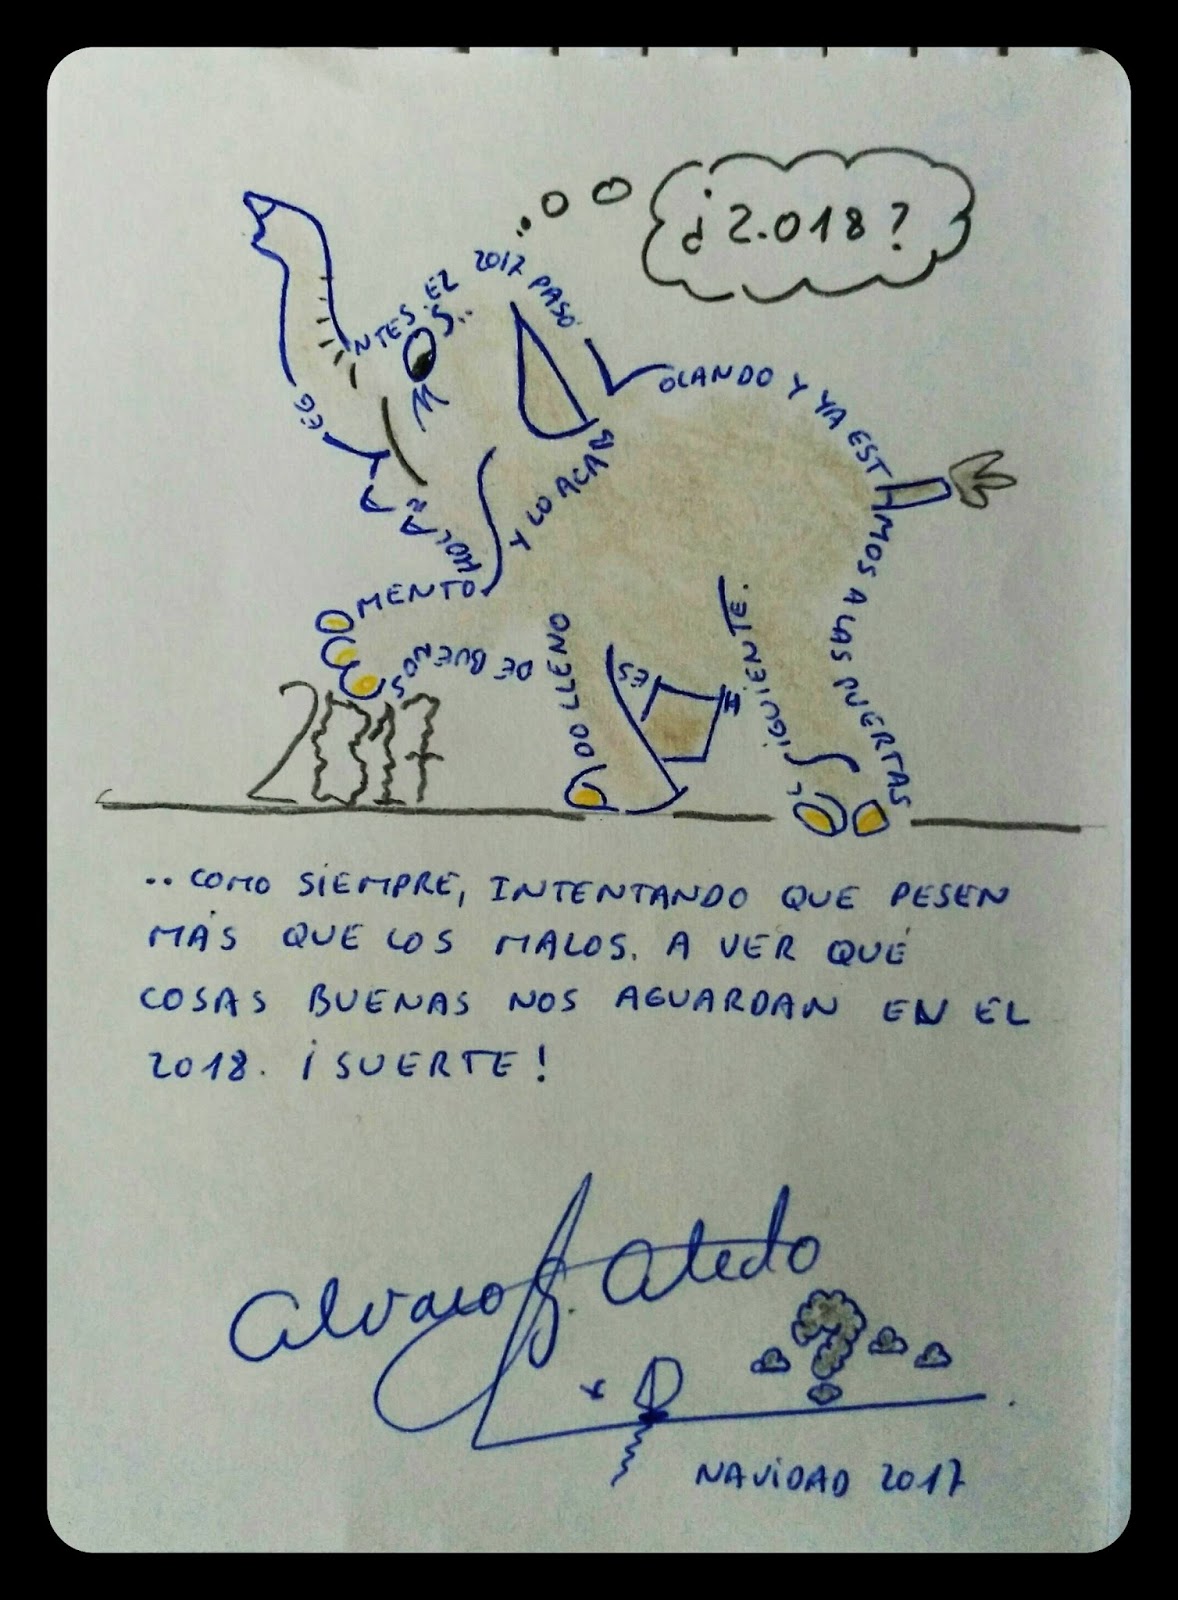 ¿2.018?
NTES EL 2017 PASÓ
OLANDO Y YA EST
MOS A LAS PUERTAS
IGUIENTE.
ES
Y LO ACAB
DO LLENO
DE BUENOS
MENTO
2017
.. COMO SIEMPRE, INTENTANDO QUE PESEN
MÁS QUE LOS MALOS. A VER QUÉ
COSAS BUENAS NOS AGUARDAN EN EL
2018. ¡SUERTE!
Alvaro G. Atedo
NAVIDAD 2017